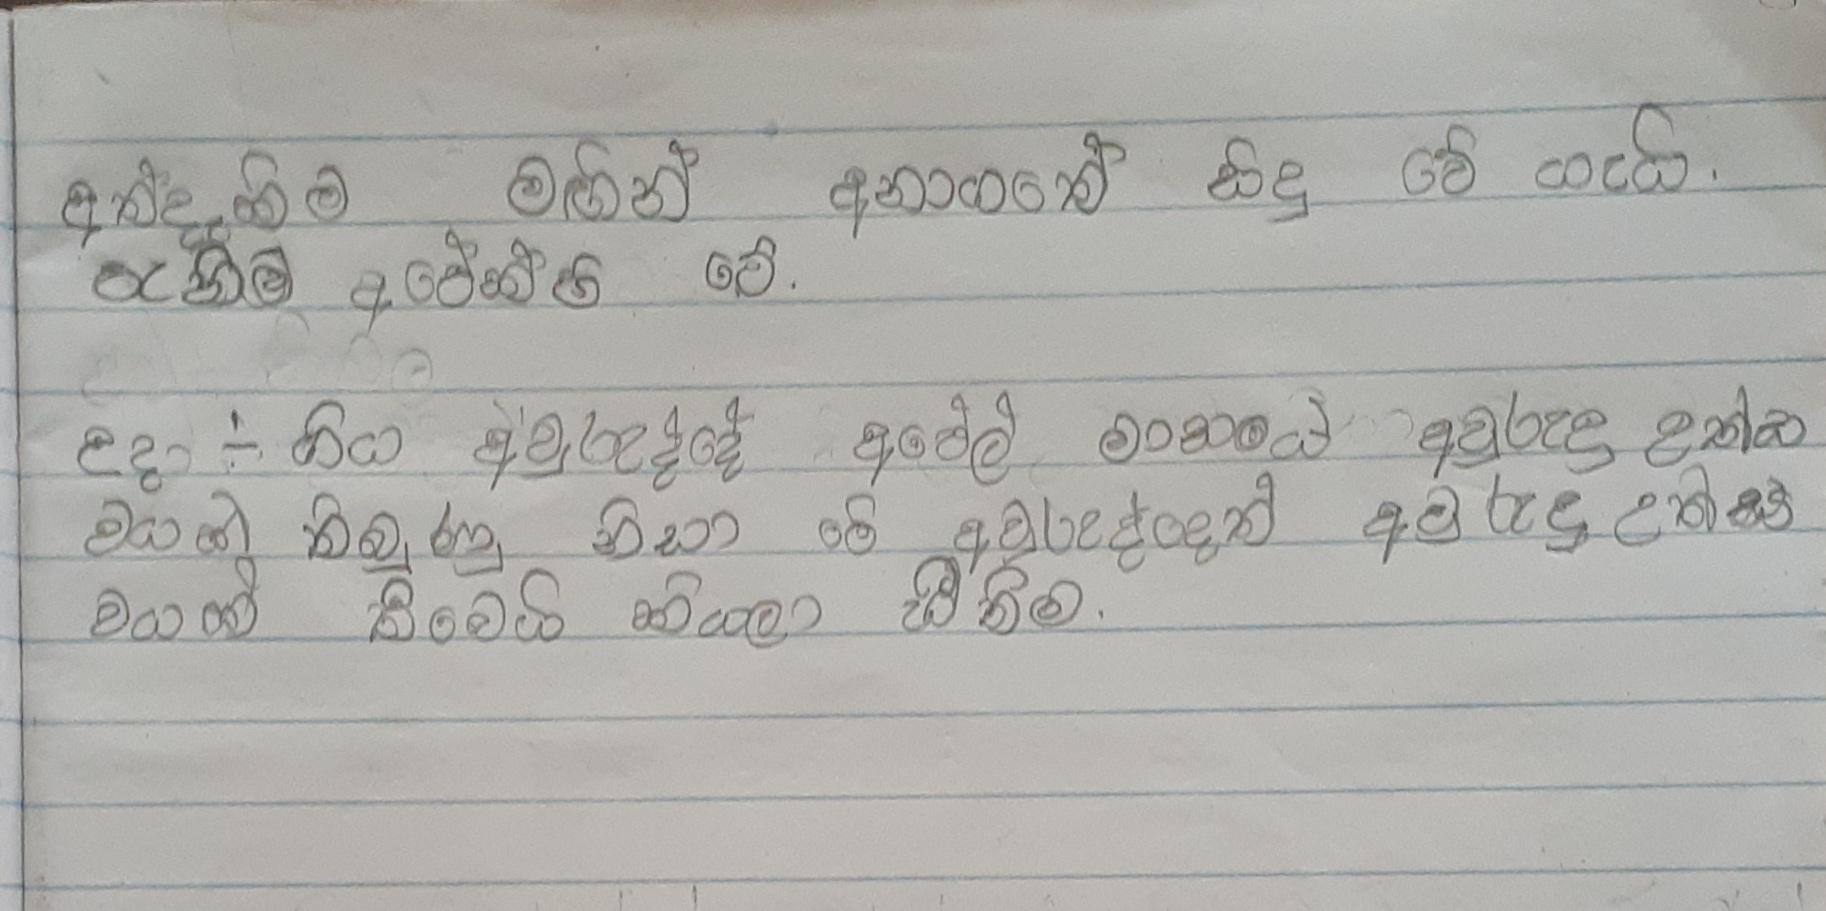 අත්දැකීම මඟින් අනාගතේ සිදු වේ යයි.
පැතීම අපේක්ෂා වේ.
උදා ÷ ගිය අවුරුද්දේ අප්‍රේල් මාසයේ අවුරුදු උත්සව
වයක් තිබුණු නිසා මේ අවුරුද්දෙත් අවුරුදු උත්සව
වයක් තිබෙයි කියලා සිතීම.